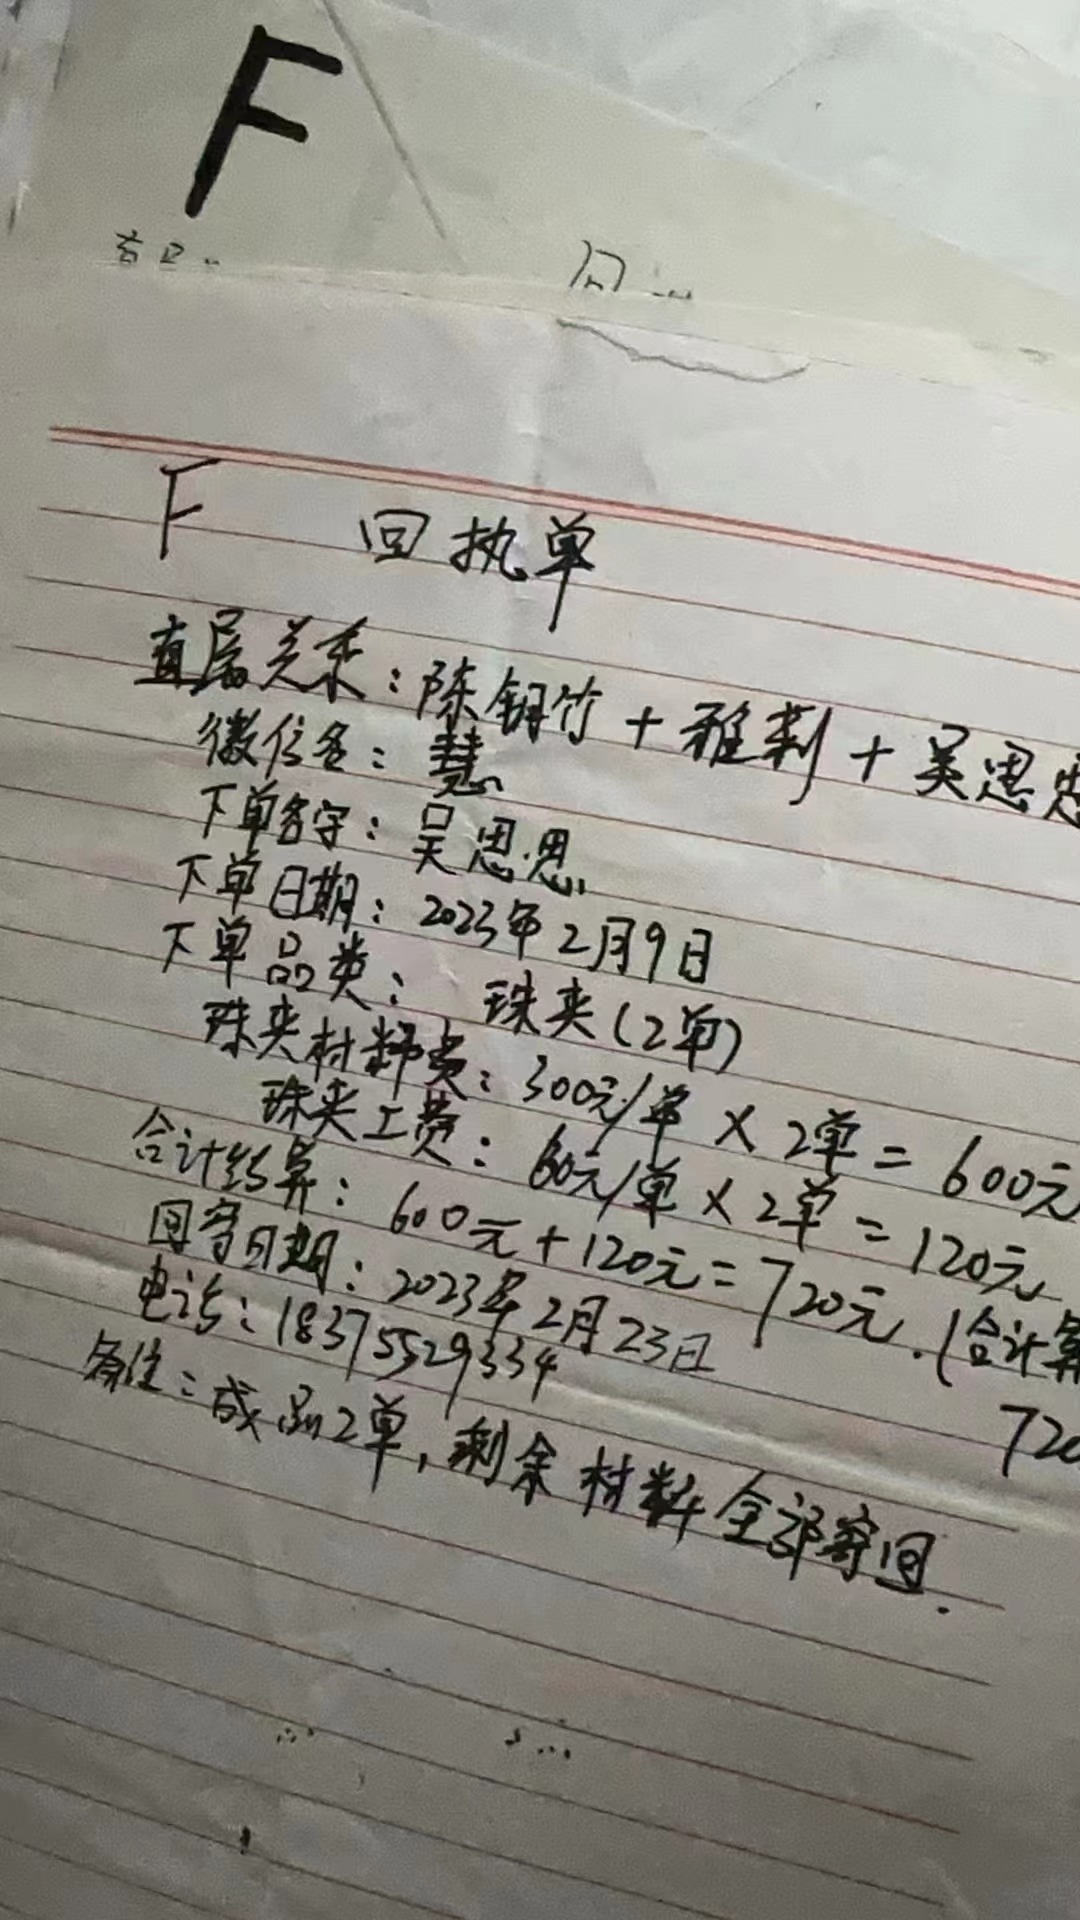 F
F 回执单
直属关系：陈钥竹＋雅莉＋吴思思
微信名：慧
下单名字：吴思思
下单日期：2023年2月9日
下单品类：珠夹（2单）
珠夹材料费：300元/单×2单＝600元
珠夹工费：60元/单×2单＝120元
合计结算：600元＋120元＝720元.（合计算
720
回寄日期：2023年2月23日
电话：18375529334
备注：成品2单，剩余材料全部寄回.